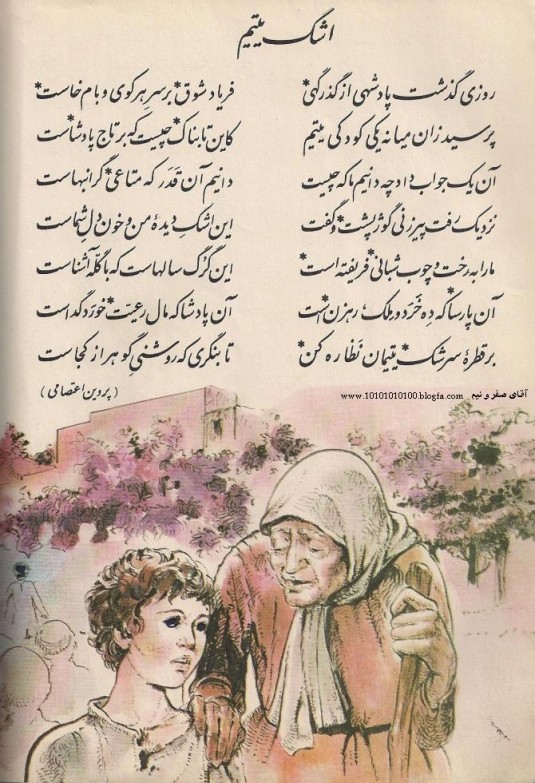 اشک یتیم
روزی گذشت پادشهی از گذرگهی* فریاد شوق* بر سر هر کوی و بام خاست*
پرسید زان میانه یکی کودکی یتیم کاین تابناک* چیست که بر تاج پادشاست*
آن یک جواب داد چه دانیم ما که چیست دانیم آن قَدَر که متاعی* گرانبهاست
نزدیک رفت پیرزنی گوژپشت* و گفت این اشکِ دیدهٔ من و خونِ دلِ شماست
ما را به رخت و چوب شبانی* فریفته است* این گرگ سالهاست که با گلّه آشناست
آن پارسا* که دِه خَرَد و مِلک، رهزن* است آن پادشا که مال رعیت* خورَد گداست
بر قطرهٔ سرشک* یتیمان نَظّاره کن* تا بنگری که روشنیِ گوهر از کجاست
(پروین اعتصامی)
آقای صفر و نیم www.10101010100.blogfa.com